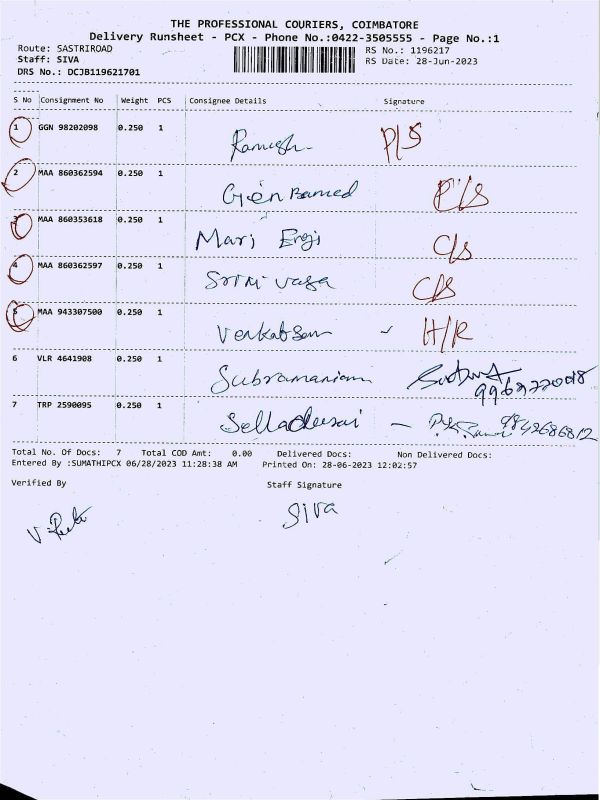 THE PROFESSIONAL COURIERS, COIMBATORE
Delivery Runsheet - PCX - Phone No.:0422-3505555 - Page No.:1
Route: SASTRIROAD RS No.: 1196217
Staff: SIVA RS Date: 28-Jun-2023
DRS No.: DCJB119621701
S No Consignment No Weight PCS Consignee Details Signature
1 GGN 98202098 0.250 1 Ramesh P/S
2 MAA 860362594 0.250 1 P/S
3 MAA 860353618 0.250 1 Mari C/S
4 MAA 860362597 0.250 1 Srinivasa C/S
5 MAA 943307500 0.250 1 - H/R
6 VLR 4641908 0.250 1 Subramaniam
7 TRP 2590095 0.250 1 Selladurai - 9842686812
Total No. Of Docs: 7 Total COD Amt: 0.00 Delivered Docs: Non Delivered Docs:
Entered By :SUMATHIPCX 06/28/2023 11:28:38 AM Printed On: 28-06-2023 12:02:57
Verified By Staff Signature
SIVA